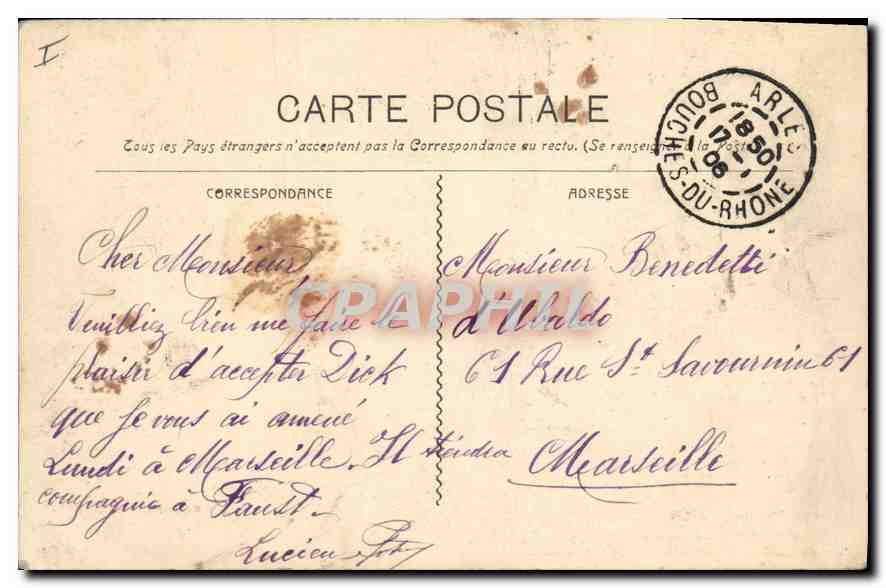 I
CARTE POSTALE
Tous les Pays étrangers n'acceptent pas la Correspondance au recto. (Se renseigner à la Poste
ARLES
18 50
17
1
06
BOUCHES-DU-RHONE
CORRESPONDANCE
ADRESSE
Cher Monsieur
Veuilliez bien me faire le
plaisir d'accepter Dick
que je vous ai amené
Lundi à Marseille. Il tiendra
compagnie à Faust.
Lucien
Monsieur Benedetti
d'Ubaldo
61 Rue St Savournin 61
Marseille
CPAPHIL